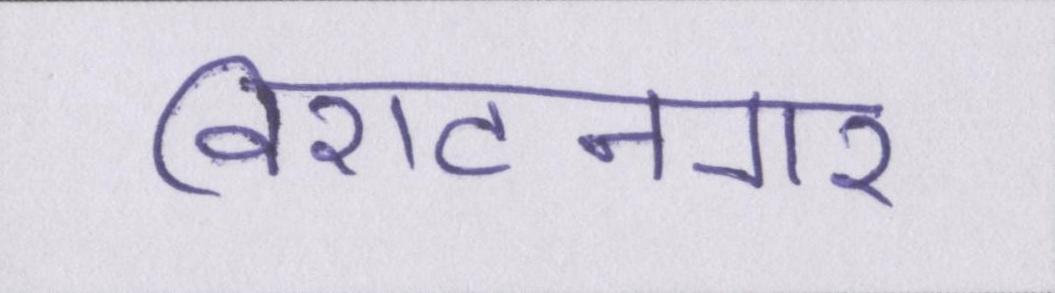 विराटनगर